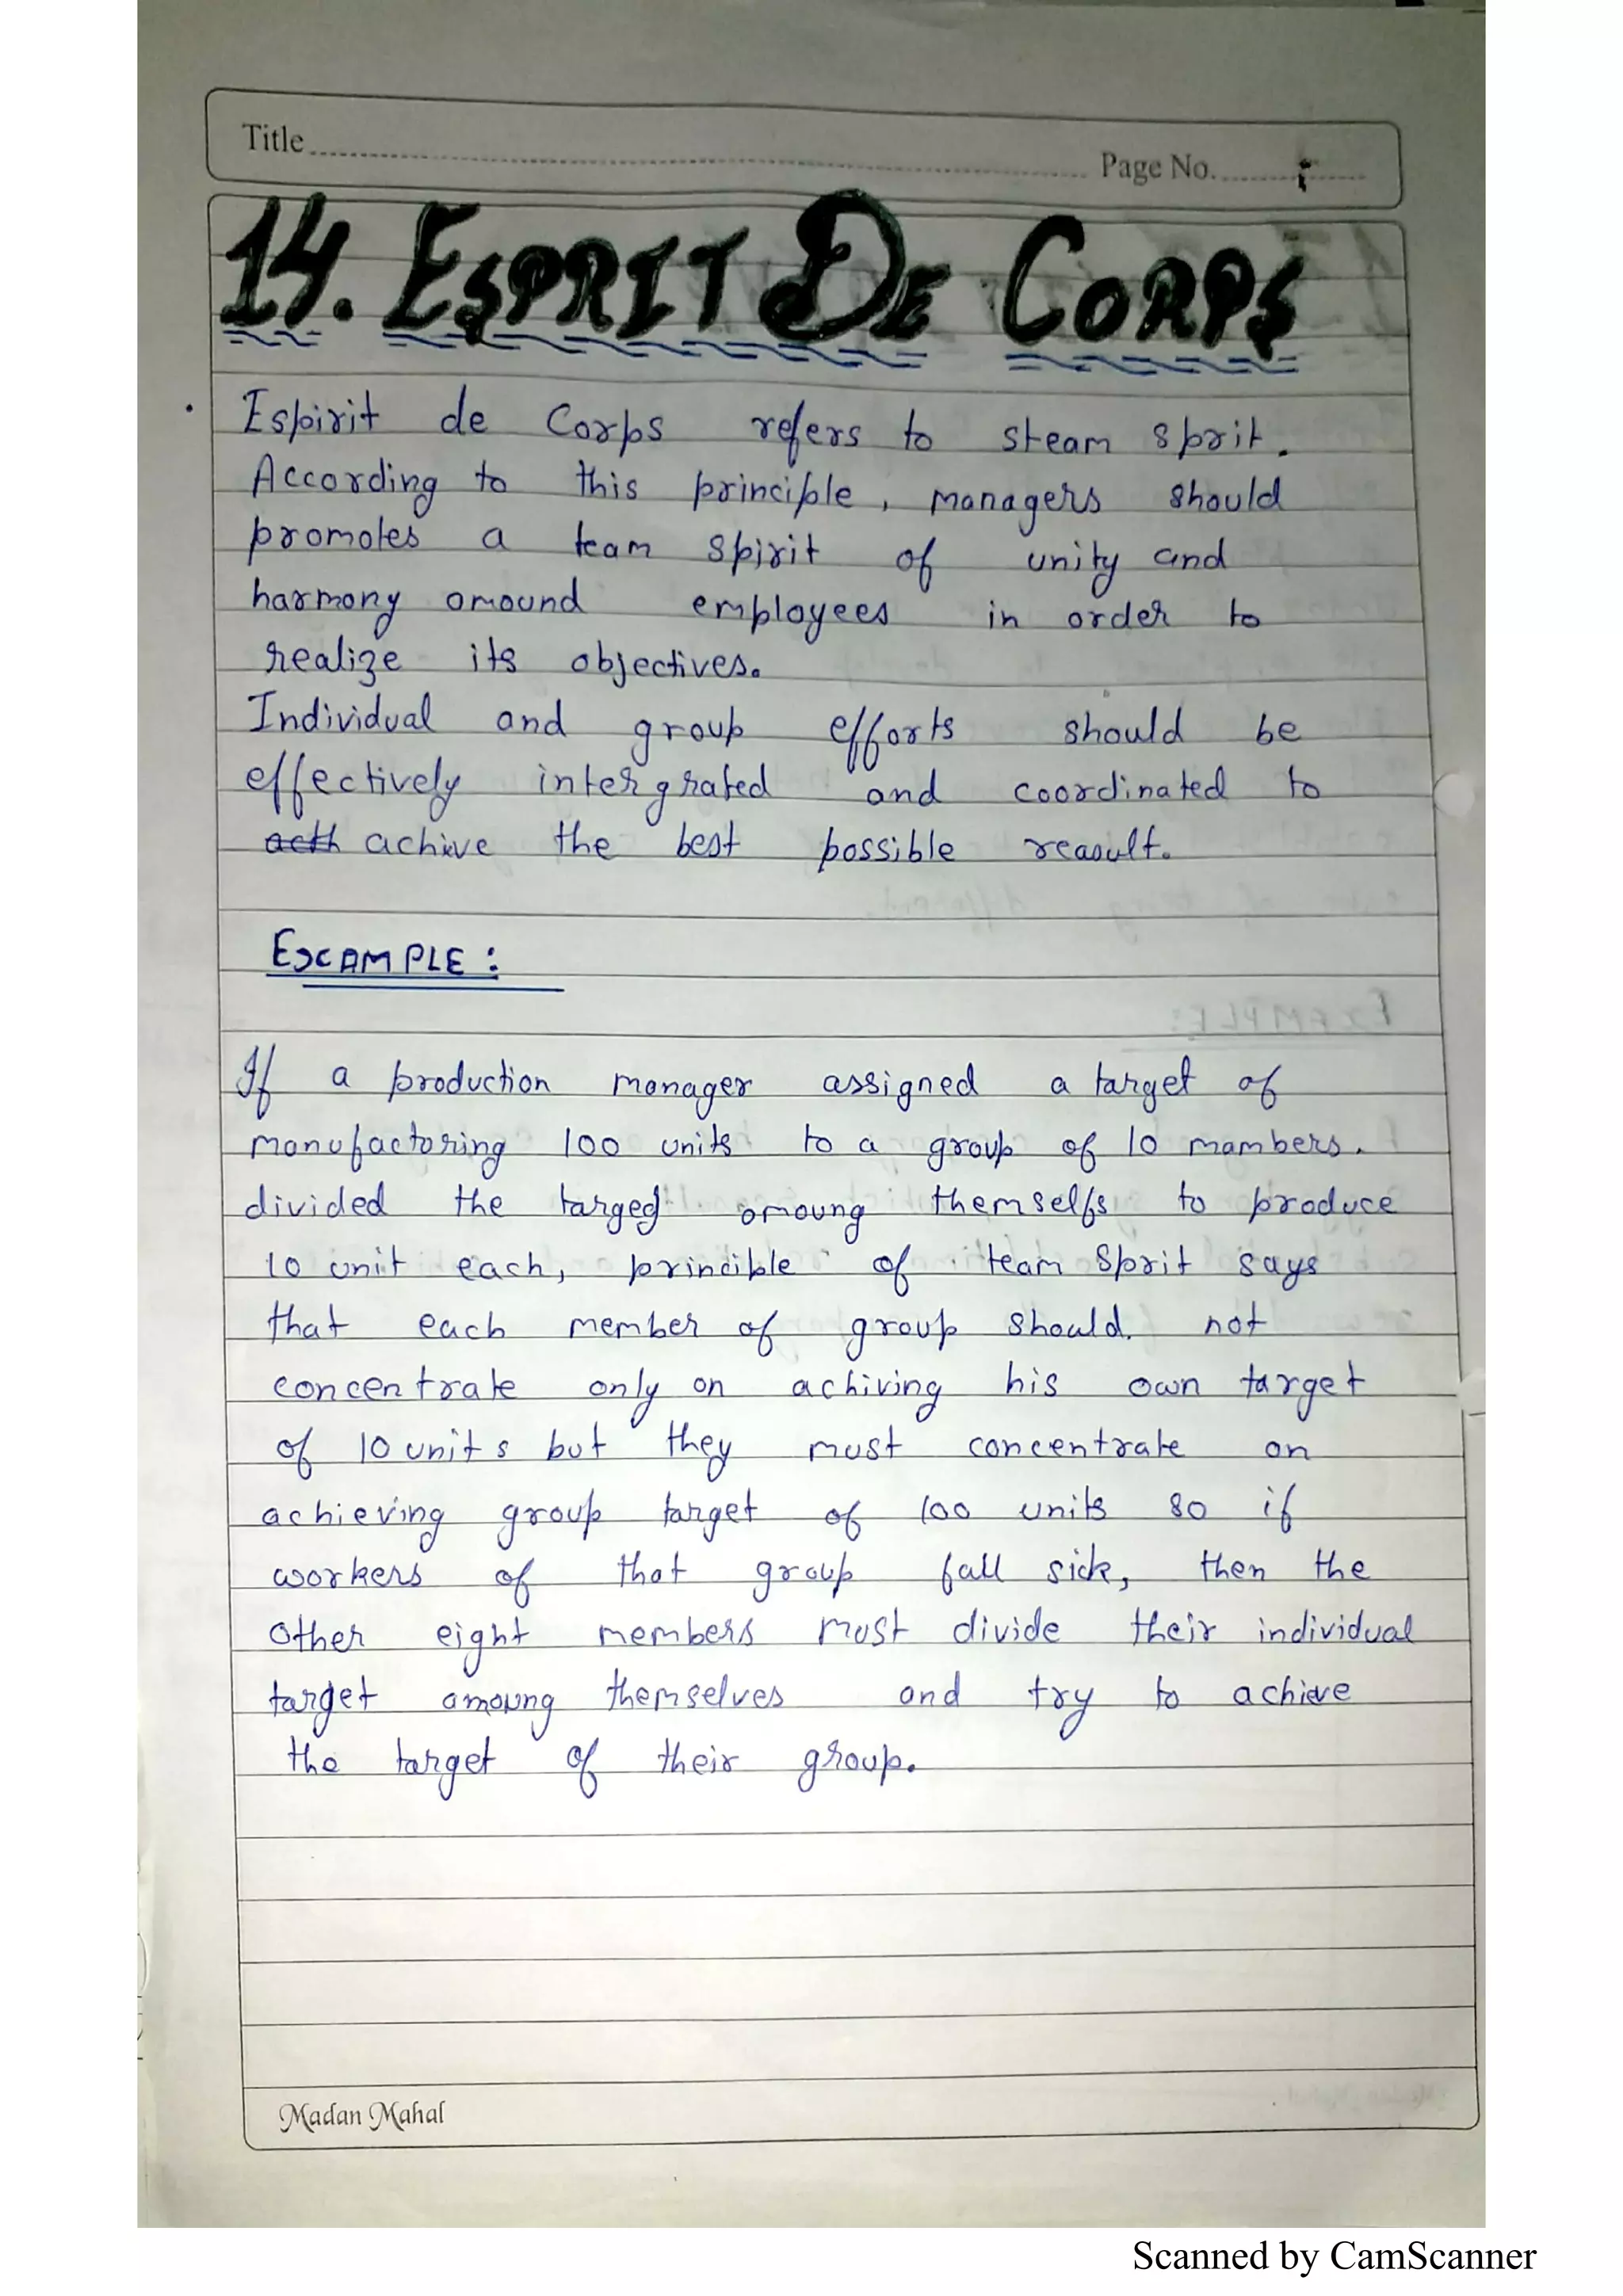 Title
Page No.
14. ESPRIT DE CORPS
Espirit de Corps refers to steam sprit.
According to this principle, managers should
promotes a team spirit of unity and
harmony amound employees in order to
realize its objectives.
Individual and group efforts should be
effectively intergrated and coordinated to
acth achive the best possible reasult.
EXAMPLE:
If a production manager assigned a target of
manufactoring 100 units to a group of 10 mambers.
divided the targed amoung themselfs to produce
10 unit each, principle of team sprit says
that each member of group should. not
concentrate only on achiving his own target
of 10 units but they must concentrate on
achieving group target of 100 units so if
workers of that group fall sick, then the
other eight members must divide their individual
target amoung themselves and try to achieve
the target of their group.
Madan Mahal
Scanned by CamScanner